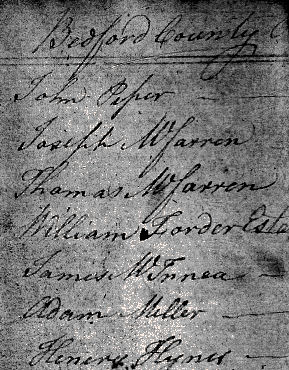 Bedford County
John Piper
Joseph McFarren
Thomas McFarren
William Forder Este
James
Adam Miller
Henery Hynes